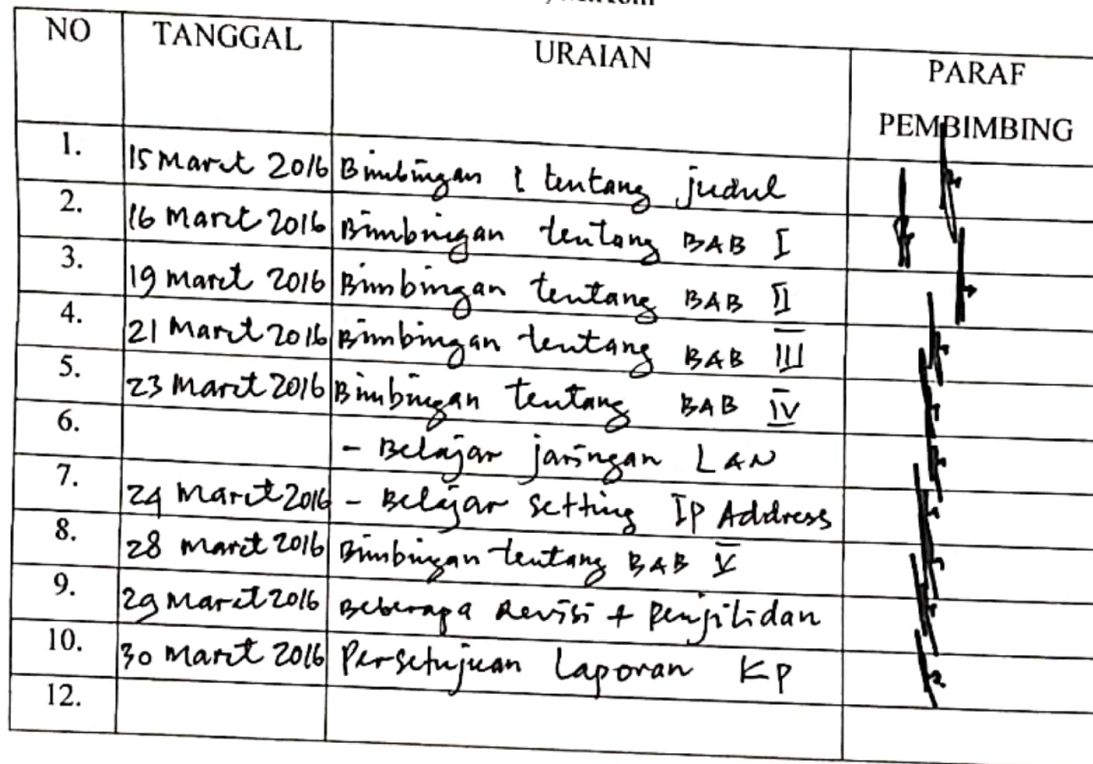 NO TANGGAL URAIAN PARAF PEMBIMBING
1. 15 Maret 2016 Bimbingan I tentang judul
2. 16 Maret 2016 Bimbingan tentang BAB I
3. 19 Maret 2016 Bimbingan tentang BAB II
4. 21 Maret 2016 Bimbingan tentang BAB III
5. 23 Maret 2016 Bimbingan tentang BAB IV
6. - Belajar jaringan LAN
7. 24 Maret 2016 - Belajar setting IP Address
8. 28 Maret 2016 Bimbingan tentang BAB V
9. 29 Maret 2016 Beberapa Revisi + Penjilidan
10. 30 Maret 2016 Persetujuan Laporan KP
12.